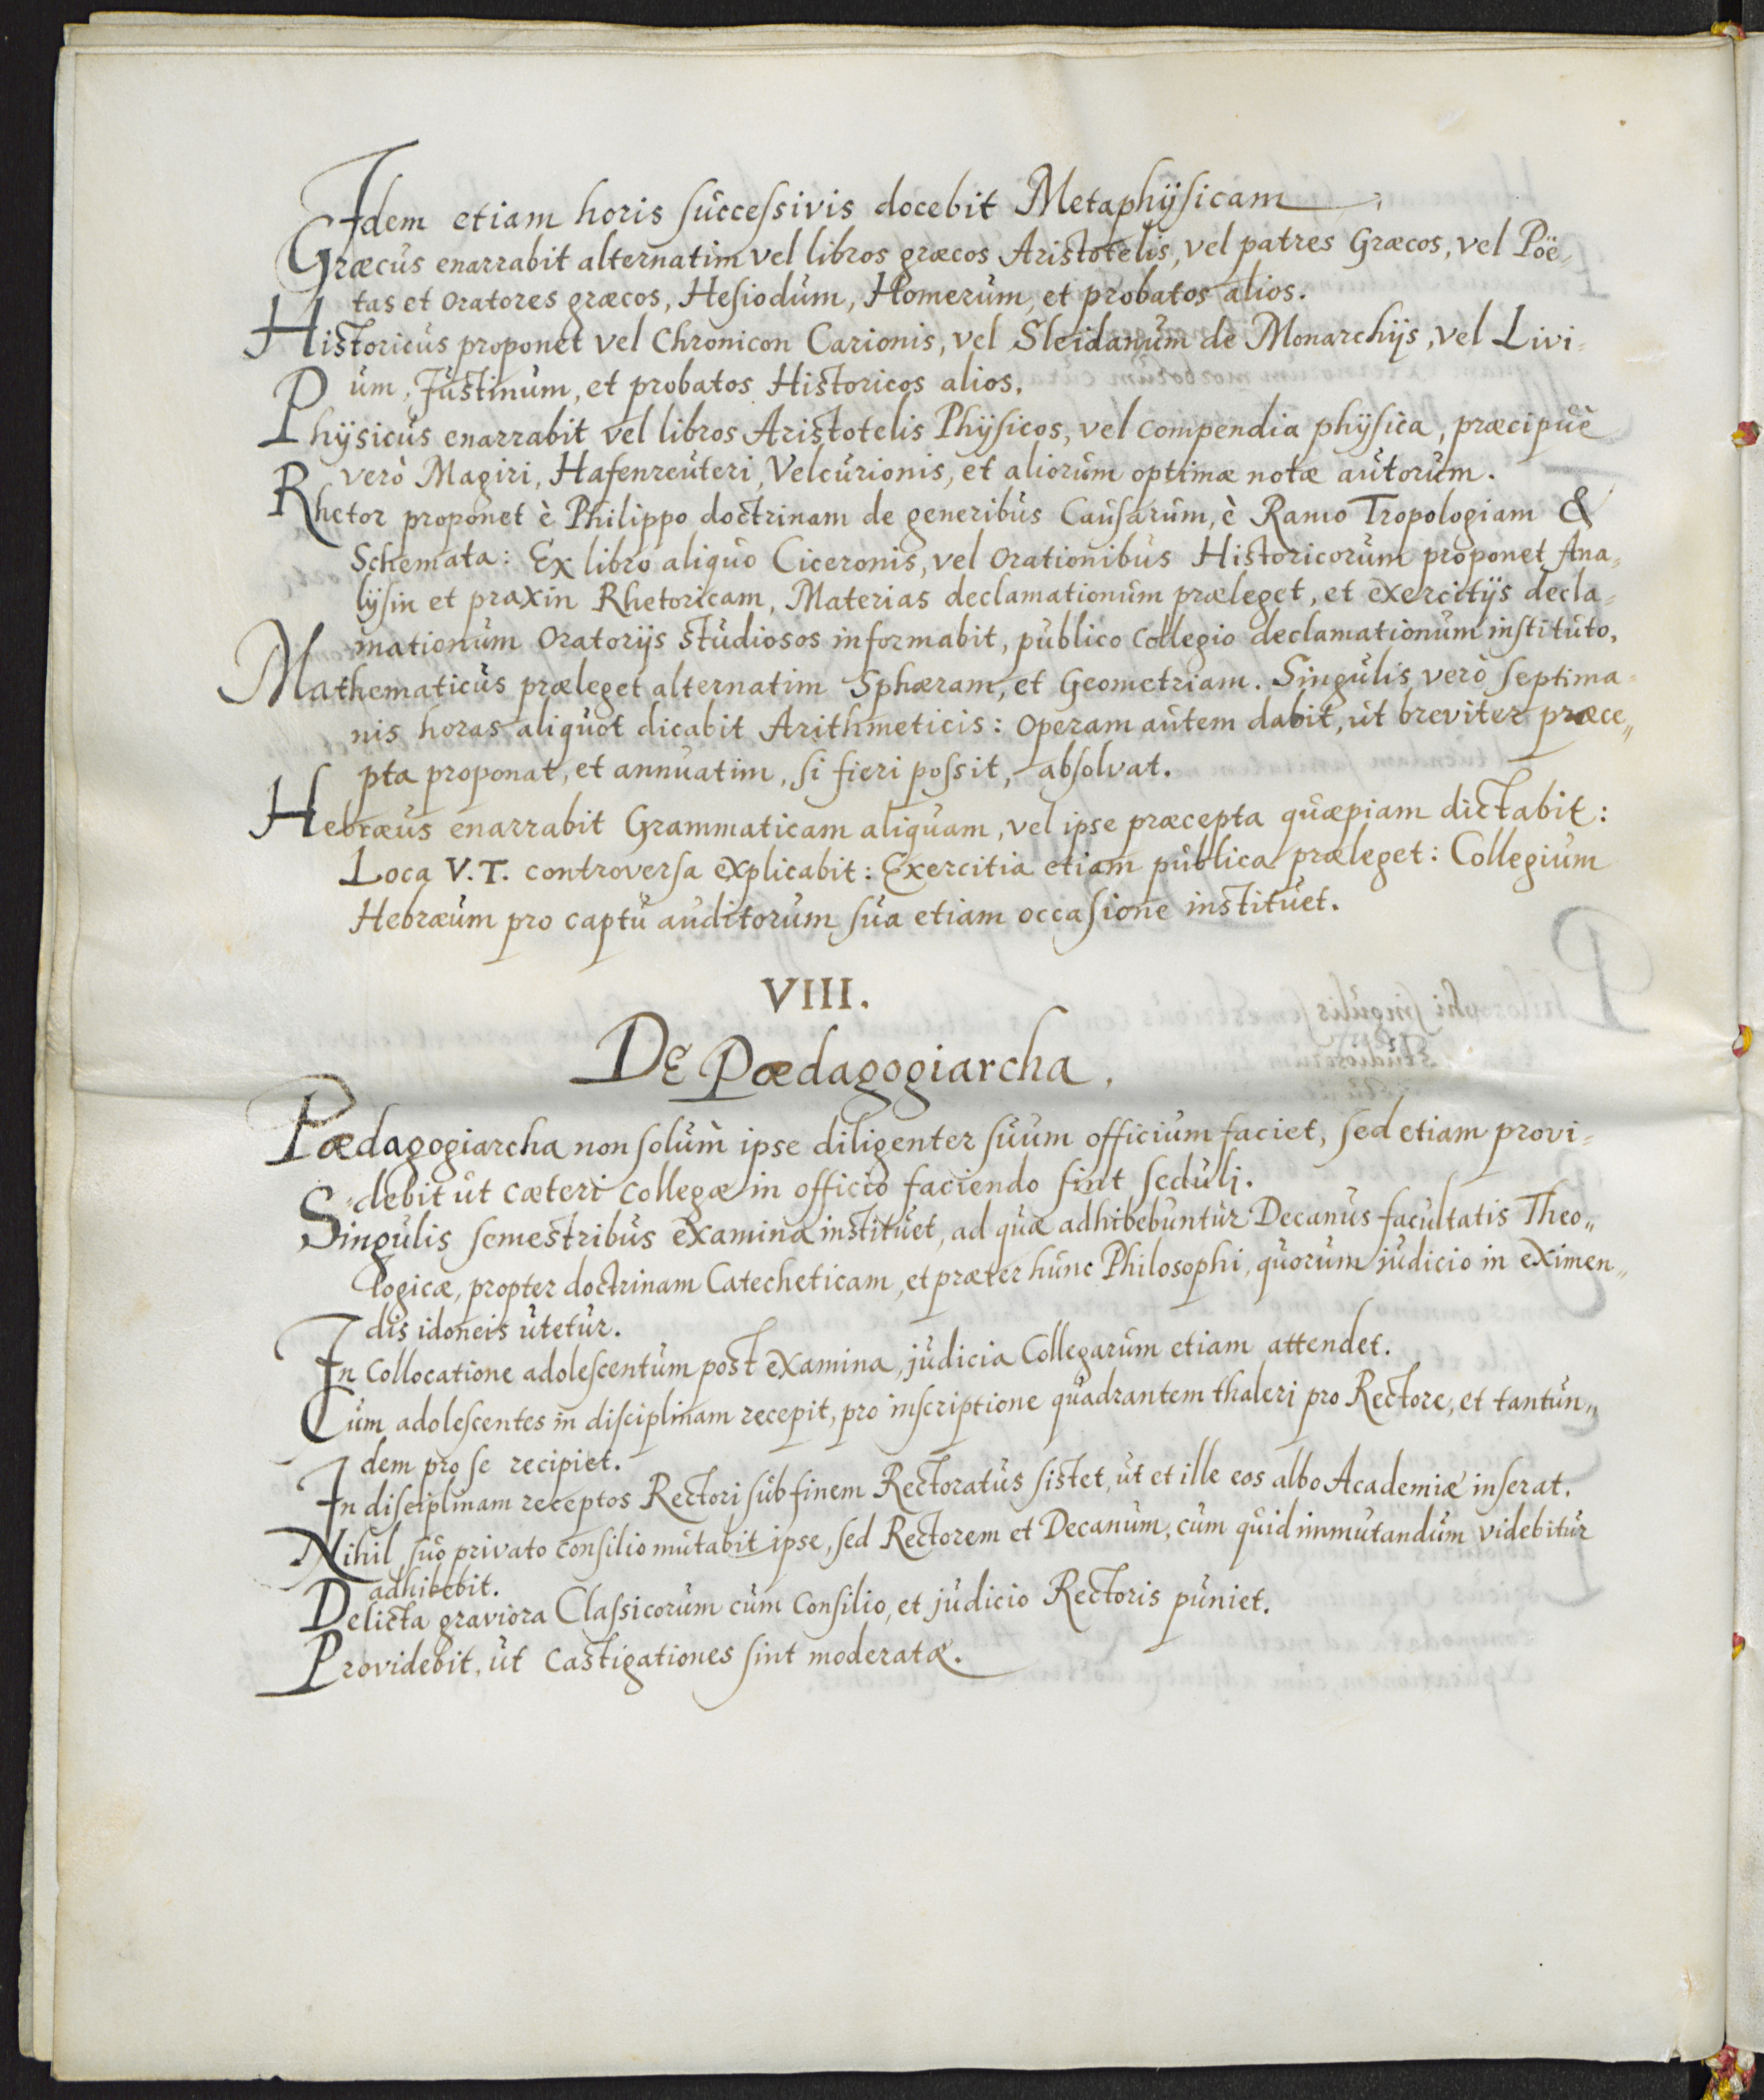 Idem etiam horis successivis docebit Metaphÿsicam
Græcus enarrabit alternatim vel libros græcos Aristotelis, vel patres Græcos, vel Poë-
tas et oratores græcos, Hesiodum, Homerum, et probatos alios.
Historicus proponet vel Chronicon Carionis, vel Sleidanum de Monarchijs, vel Livi-
um, Justinum, et probatos Historicos alios.
Phÿsicus enarrabit vel libros Aristotelis Phÿsicos, vel compendia phÿsica, præcipuè
verò Magiri, Hafenreuteri, Velcurionis, et aliorum optimæ notæ autorum.
Rhetor proponet è Philippo doctrinam de generibus Causarum, è Ramo Tropologiam &
Schemata: Ex libro aliquo Ciceronis, vel orationibus Historicorum proponet Ana-
lÿsin et praxin Rhetoricam, Materias declamationum præleget, et exercitijs decla-
mationum oratorijs studiosos informabit, publico collegio declamationum instituto,
Mathematicus præleget alternatim Sphæram, et Geometriam. Singulis verò septima-
nis horas aliquot dicabit Arithmeticis: operam autem dabit, ut breviter præce-
pta proponat, et annuatim, si fieri possit, absolvat.
Hebræus enarrabit Grammaticam aliquam, vel ipse præcepta quæpiam dictabit:
Loca V. T. controversa explicabit: Exercitia etiam publica præleget: Collegium
Hebræum pro captu auditorum sua etiam occasione instituet.
VIII.
De Pædagogiarcha.
Pædagogiarcha non solum ipse diligenter suum officium faciet, sed etiam provi-
debit ut cæteri collegæ in officio faciendo sint seduli.
Singulis semestribus examina instituet, ad quæ adhibebuntur Decanus facultatis Theo-
logicæ, propter doctrinam Catecheticam, et præter hunc Philosophi, quorum judicio in eximen-
dis idoneis utetur.
In collocatione adolescentum post examina, judicia Collegarum etiam attendet.
Cum adolescentes in disciplinam recepit, pro inscriptione quadrantem thaleri pro Rectore, et tantun-
dem pro se recipiet.
In disciplinam receptos Rectori sub finem Rectoratus sistet, ut et ille eos albo Academiæ inserat.
Nihil suo privato consilio mutabit ipse, sed Rectorem et Decanum, cum quid immutandum videbitur
adhibebit.
Delicta graviora Classicorum cum consilio, et judicio Rectoris puniet.
Providebit, ut castigationes sint moderatæ.